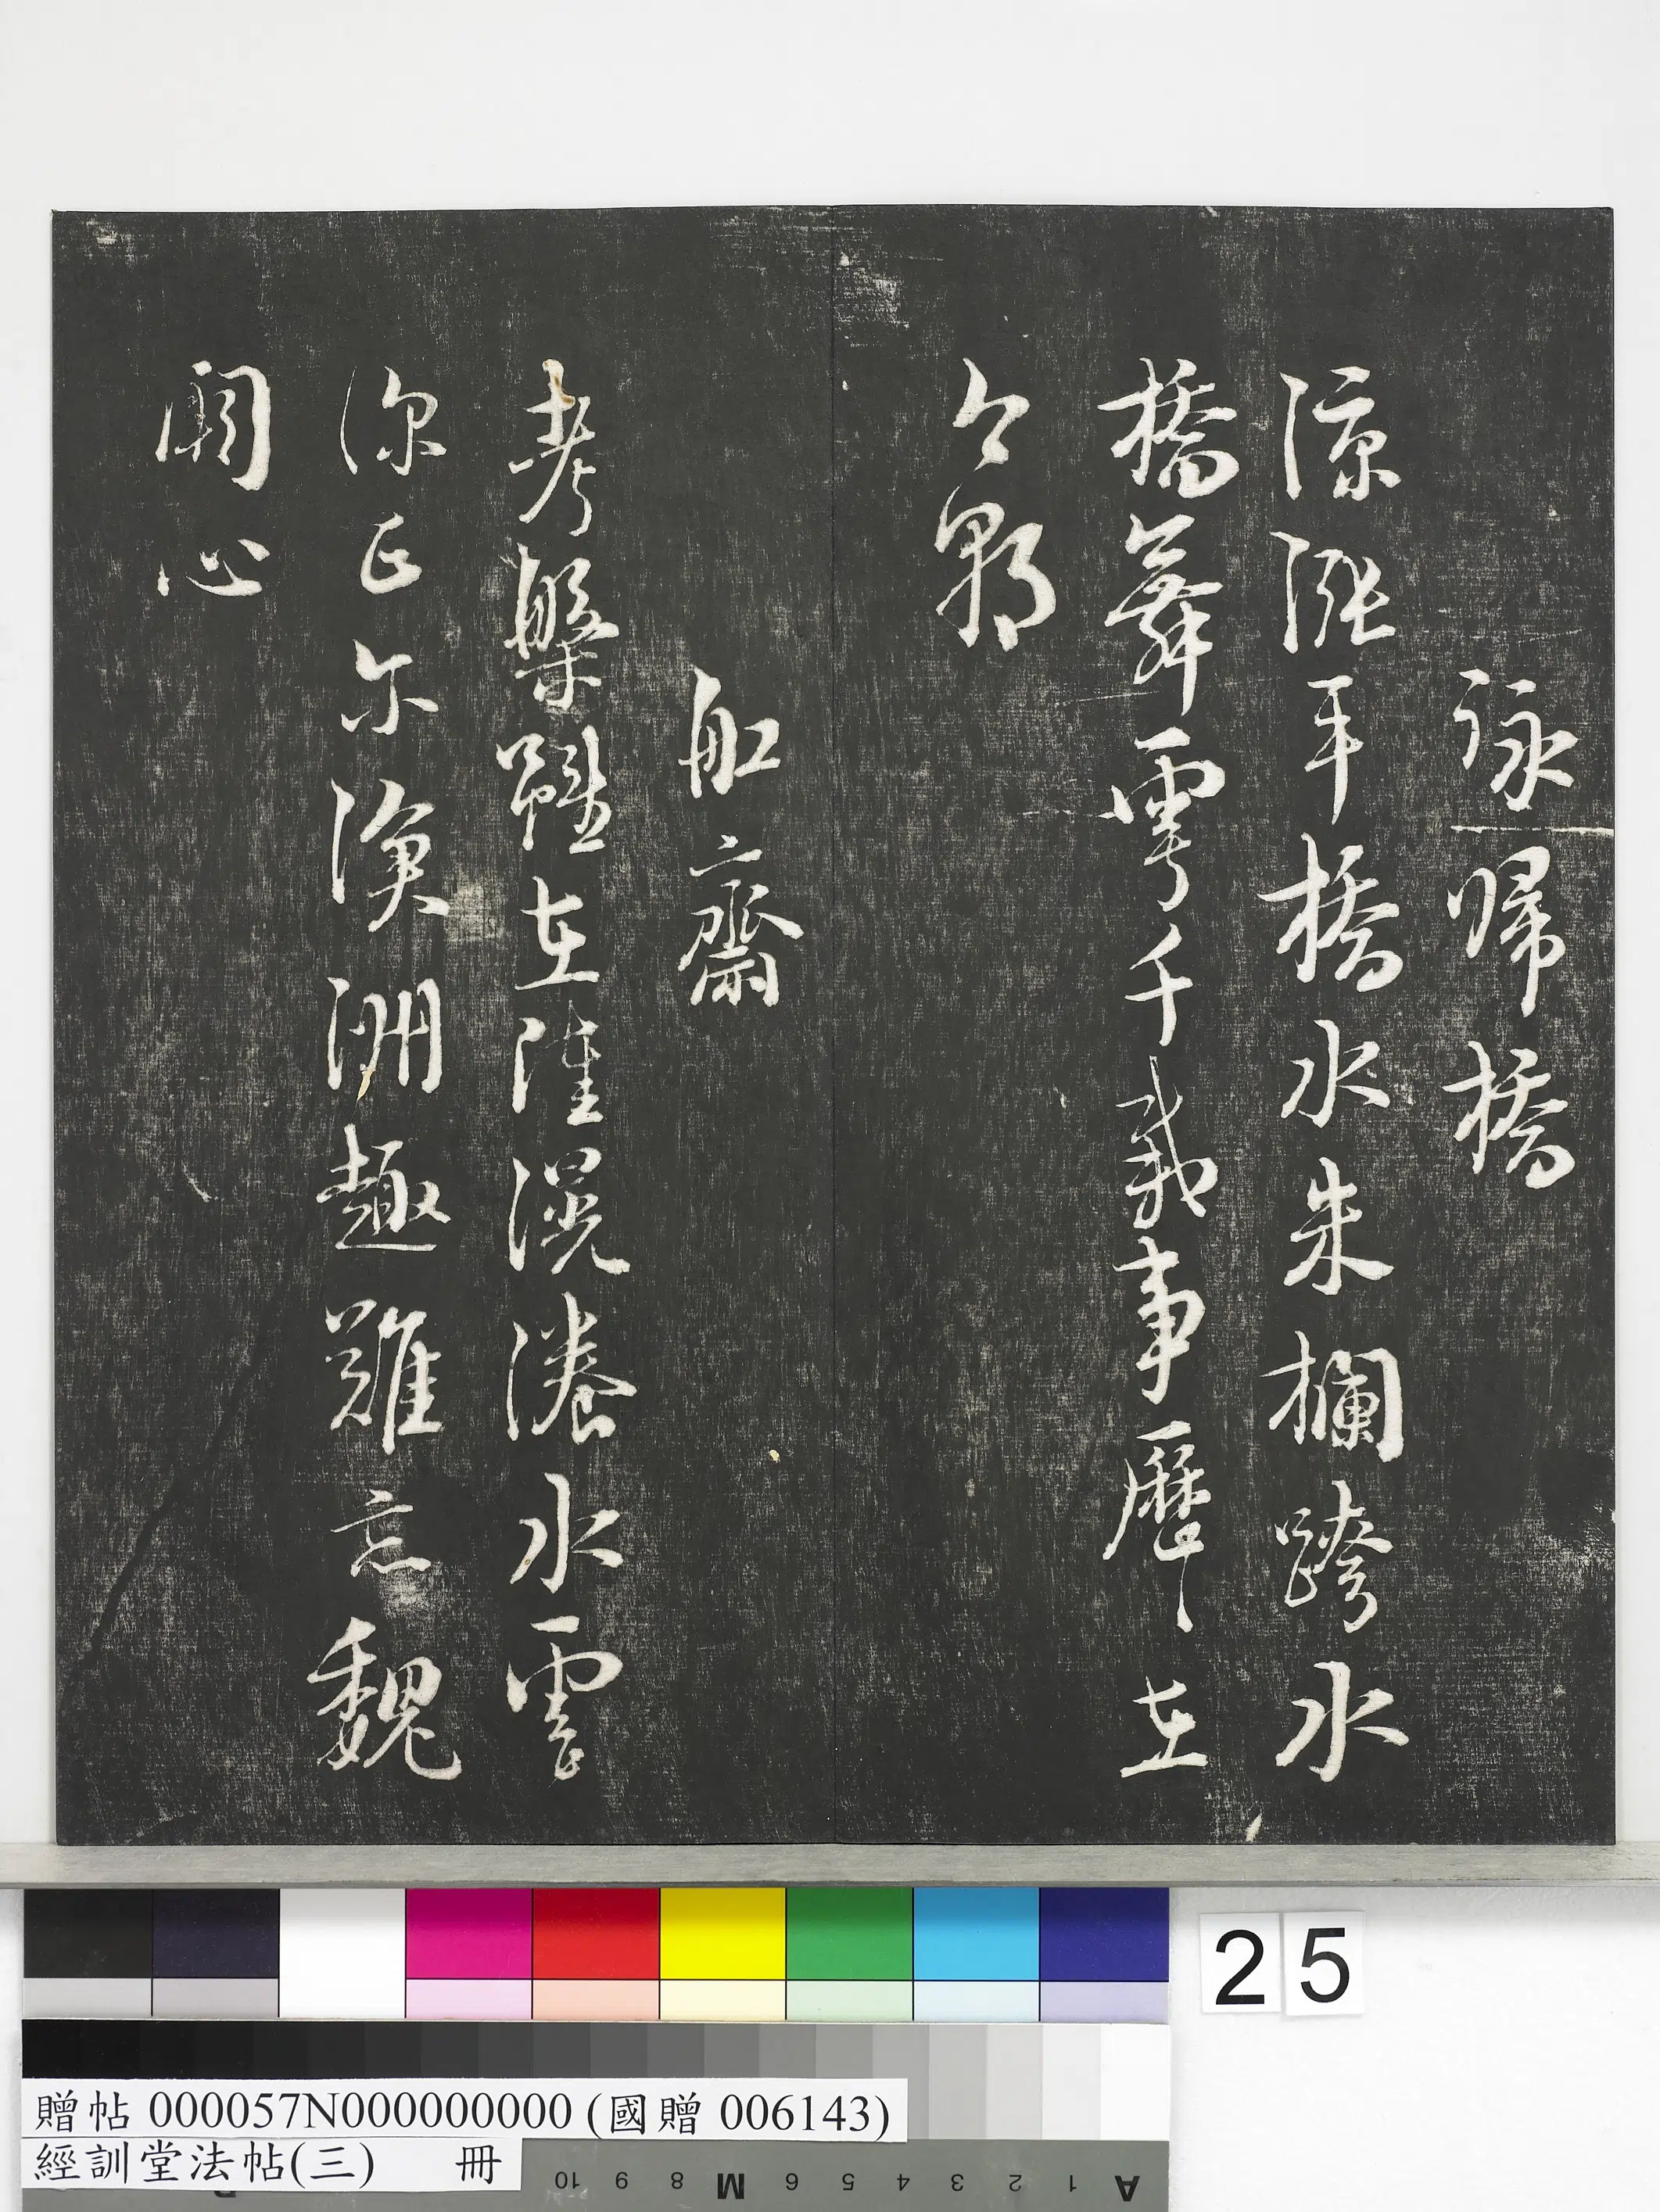 詠歸橋
涼漲平橋水朱欄跨水
橋舞雩千載事歷〻在
今朝
船齋
考槃雖在陸滉瀁水雲
深正尔滄洲趣難忘魏
闕心
25
贈帖 000057N000000000 (國贈 006143)
經訓堂法帖(三) 冊
10 9 8 M 6 5 4 3 2 1 A